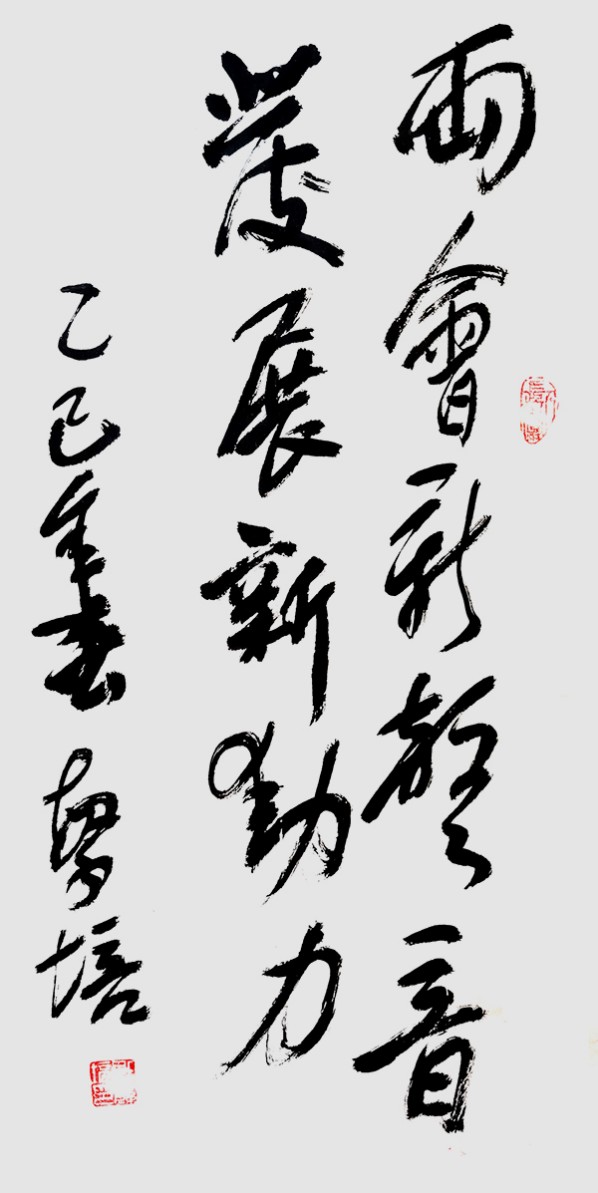 兩會新聲音
發展新動力
乙巳年書 黎培